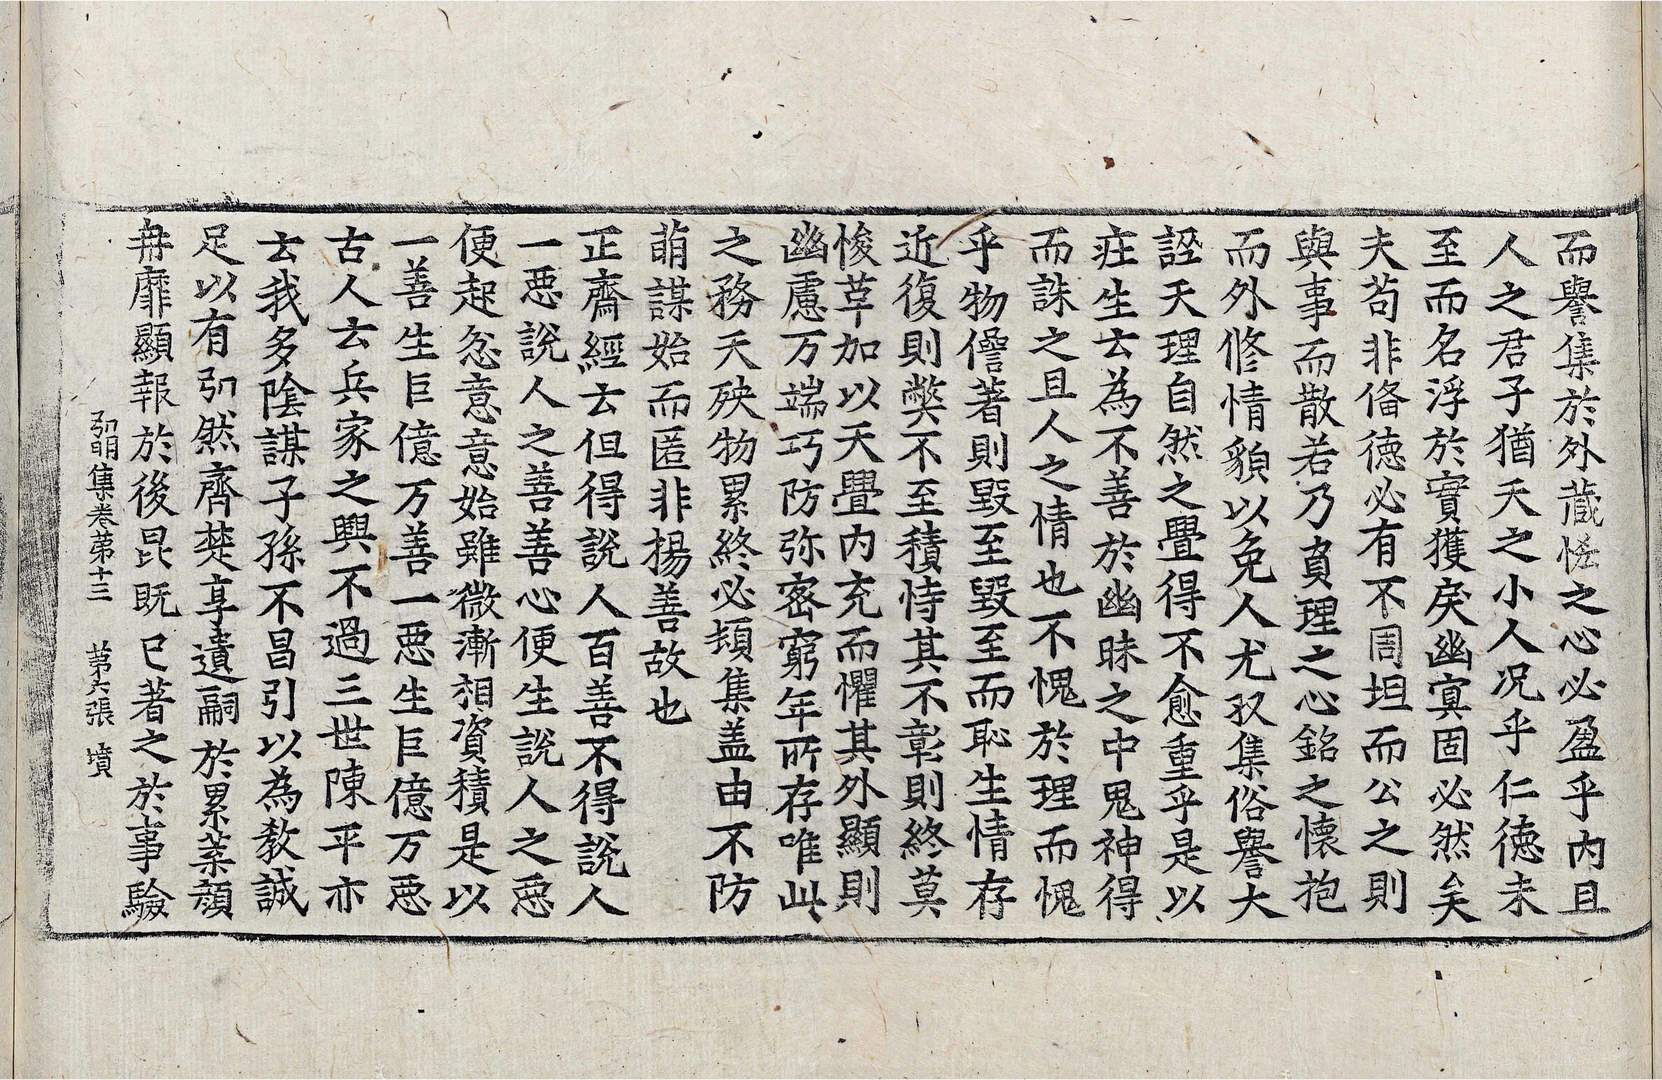 而譽集於外藏恡之心必盈乎内且
人之君子猶天之小人况乎仁德未
至而名浮於實獲戾幽冥固必然矣
夫苟非俻德必有不周坦而公之則
與事而散若乃負理之心銘之懷抱
而外修情貌以免人尤収集俗譽大
誣天理自然之亹得不愈重乎是以
疰生云為不善於幽昧之中鬼神得
而誅之且人之情也不愧於理而愧
乎物僣著則毀至毀至而恥生情存
近復則獘不至積恃其不彰則終莫
悛草加以天亹内充而懼其外顯則
幽慮万端巧防弥密窮年所存唯此
之務天殃物累終必頖集盖由不防
萌謀始而匿非揚善故也
正齋經云但得說人百善不得說人
一惡說人之善善心便生說人之惡
便起忿意意始雖微漸相資積是以
一善生巨億万善一惡生巨億万惡
古人云兵家之興不過三世陳平亦
云我多陰謀子孫不昌引以為教誠
足以有弘然齊楚享遺嗣於累葉顔
冉靡顯報於後昆既已著之於事驗
弘明集卷第十三 第六張 墳